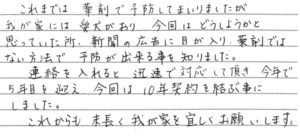 これまでは 薬剤で予防してまいりましたが
我が家には愛犬がおり 今回はどうしようかと
思っていた所、新聞の広告に目が入り、薬剤では
ない方法で 予防が出来る事を知りました。
連絡を入れると 迅速で対応して頂き 今年で
5年目を迎え 今回は 10年契約を結ぶ事に
しました。
これからも 末長く 我が家を宜しくお願いします。